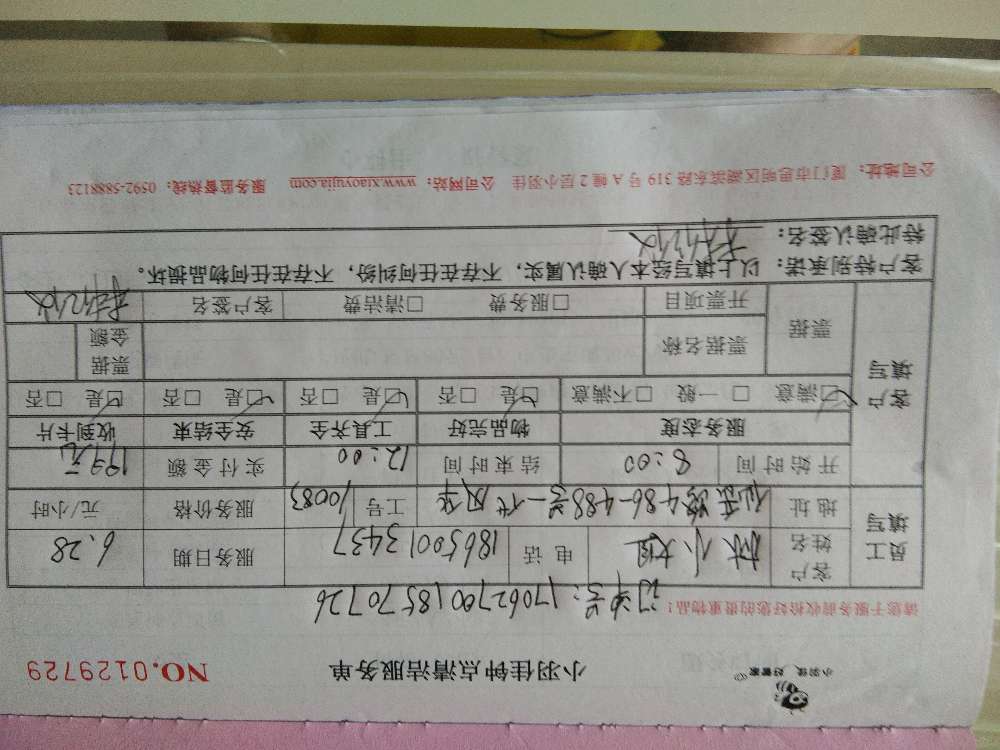 小羽佳 好管家
小羽佳钟点清洁服务单
NO.0129729
请您于服务前收恰好您的贵重物品！
订单号：170627001857070726
员工填写 客户姓名 林小姐 电话 18650013437 服务日期 6.28
地址 仙岳路486-488号一代风华 工号 10083 服务价格 元/小时
开始时间 8:00 结束时间 12:00 实付金额 199元
客户填写 服务态度 物品完好 工具齐全 安全结束 收到卡片
☑满意 □一般 □不满意 ☑是 □否 ☑是 □否 ☑是 □否 ☑是 □否
票据 票据名称 票据金额
开票项目 □服务费 □清洁费 客户签名
客户特别承诺：以上填写经本人确认属实，不存在任何纠纷，不存在任何物品损坏。
特此确认签名：
公司地址：厦门市思明区湖滨东路319号A幢2层小羽佳 公司网站：www.xiaoyujia.com 服务监督热线：0592-5888123